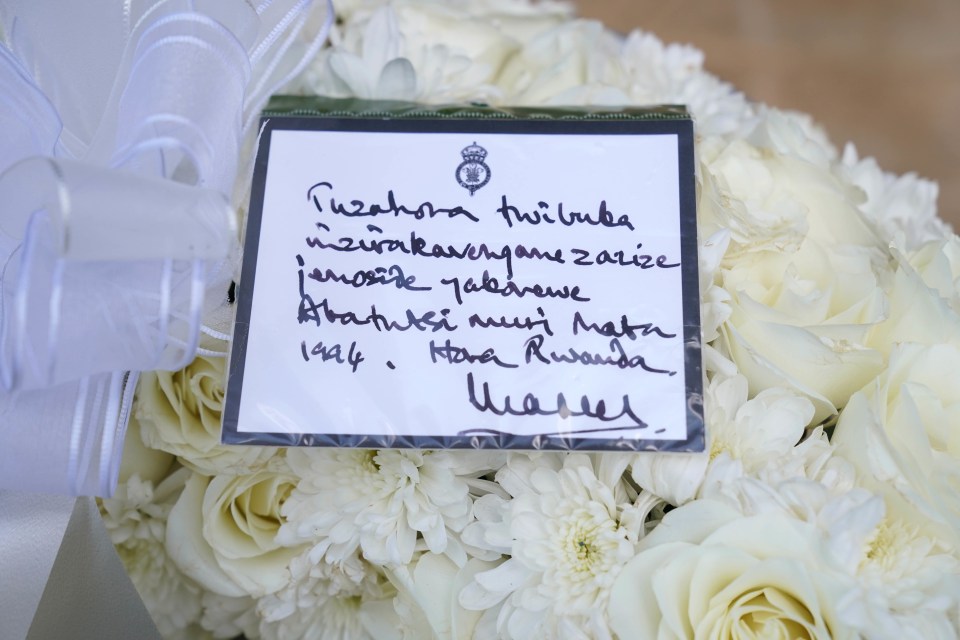 Tuzahora twibuka
inzirakarengane zazize
jenoside yakorewe
Abatutsi muri Mata
1994. Hora Rwanda.
Charles